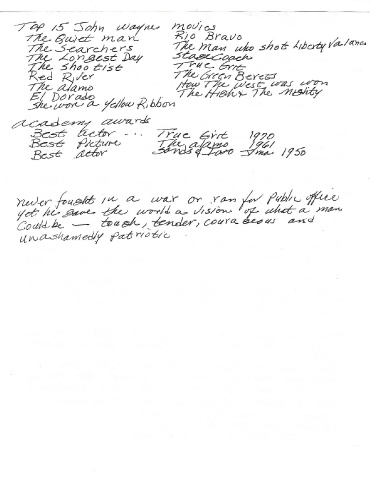 Top 15 John Wayne movies
The Quiet man
The Searchers
The Longest Day
The Shootist
Red River
The alamo
El Dorado
She wore a yellow Ribbon
Rio Bravo
The Man who shot Liberty Valance
Stagecoach
True Grit
The Green Berets
How The West was won
The High & The Mighty
academy awards
Best actor ... True Grit 1970
Best Picture The alamo 1961
Best actor Sands of Iwo Jima 1950
never fought in a war or ran for Public office
yet he gave the world a vision of what a man
Could be — tough, tender, courageous and
unashamedly patriotic